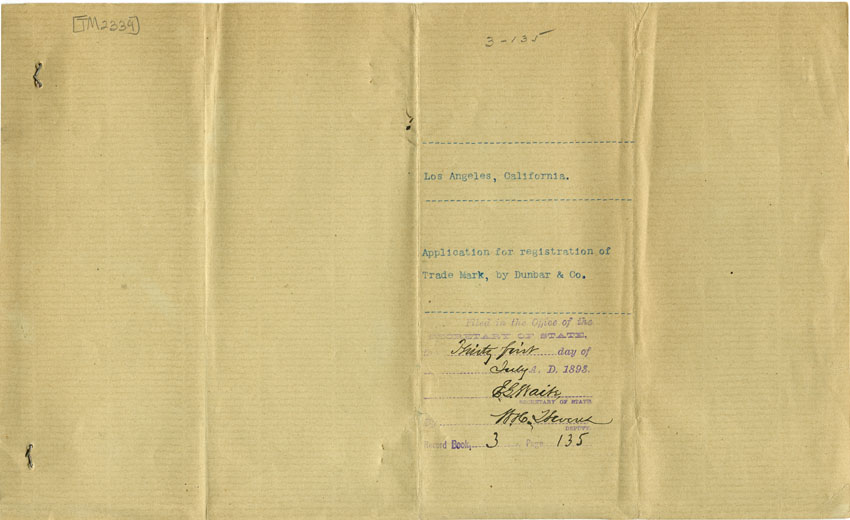 TM2339
3-135
Los Angeles, California.
Application for registration of
Trade Mark, by Dunbar & Co.
Filed in the Office of the
SECRETARY OF STATE,
Thirty first day of
July A. D. 1893.
E G Waite
SECRETARY OF STATE
By W. H. Stevens
DEPUTY
Record Book 3 Page 135